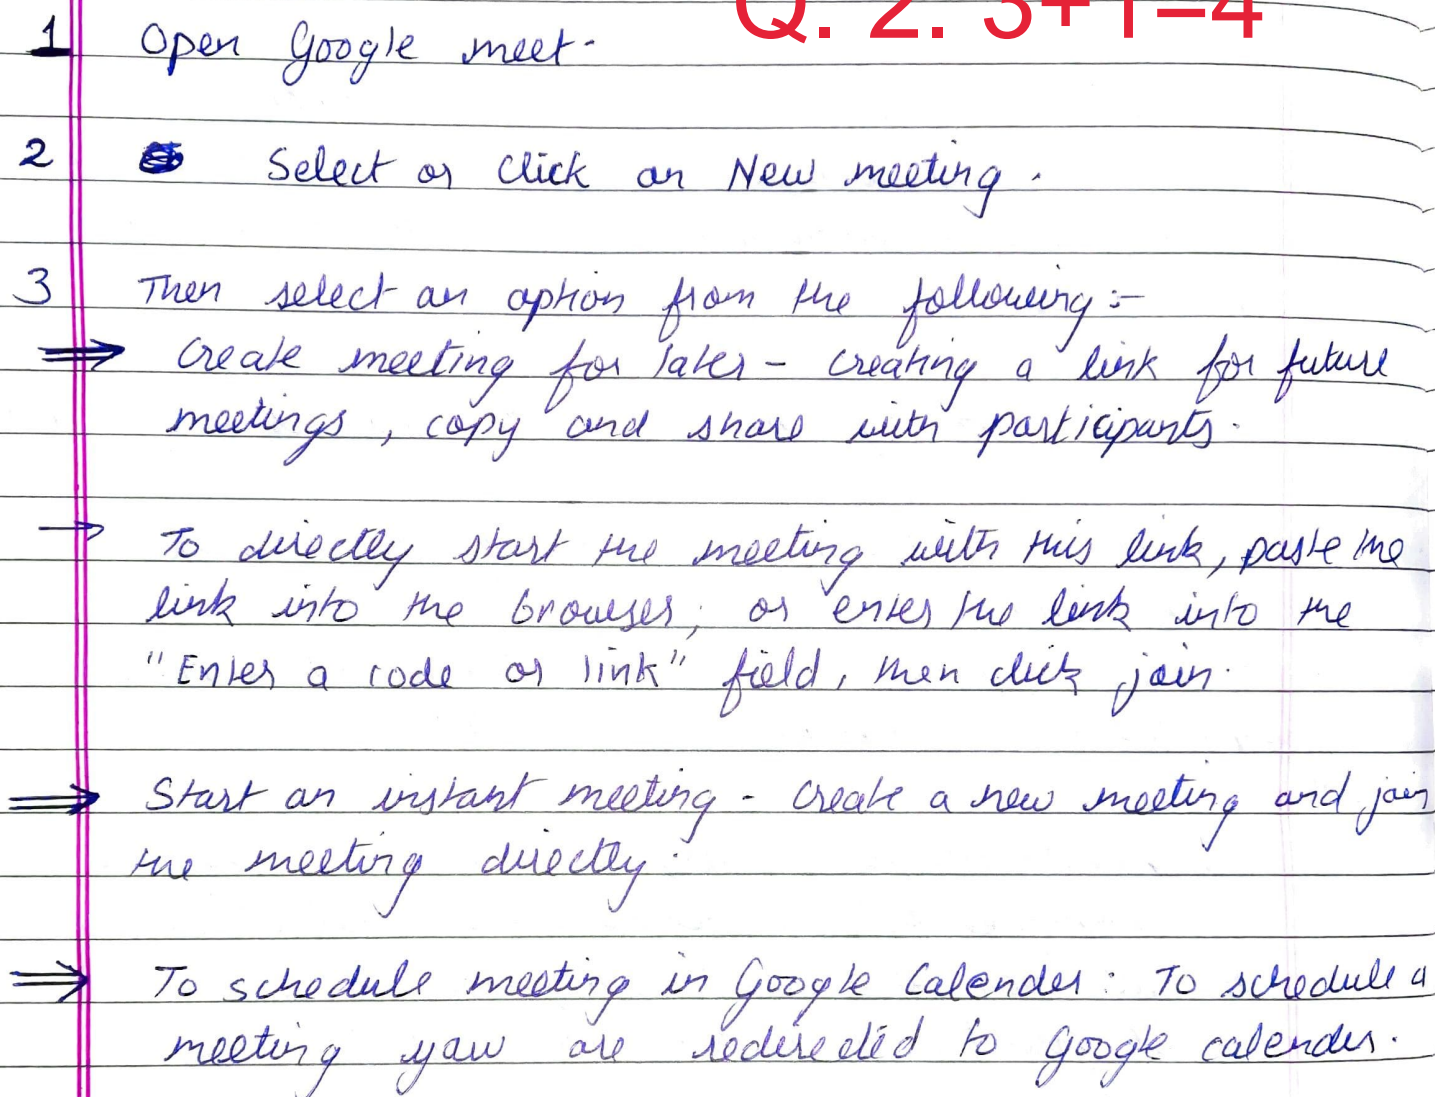 Q. 2. 3+1=4
1 Open Google meet.
2 Select or Click on New meeting.
3 Then select an option from the following :-
⇒ Create meeting for later - Creating a link for future
meetings, copy and share with participants.
→ To directly start the meeting with this link, paste the
link into the browser; or enter the link into the
"Enter a code or link" field, then click join.
⇒ Start an instant meeting - Create a new meeting and join
the meeting directly.
⇒ To schedule meeting in Google Calender: To schedule a
meeting yaw are redirected to Google calender.